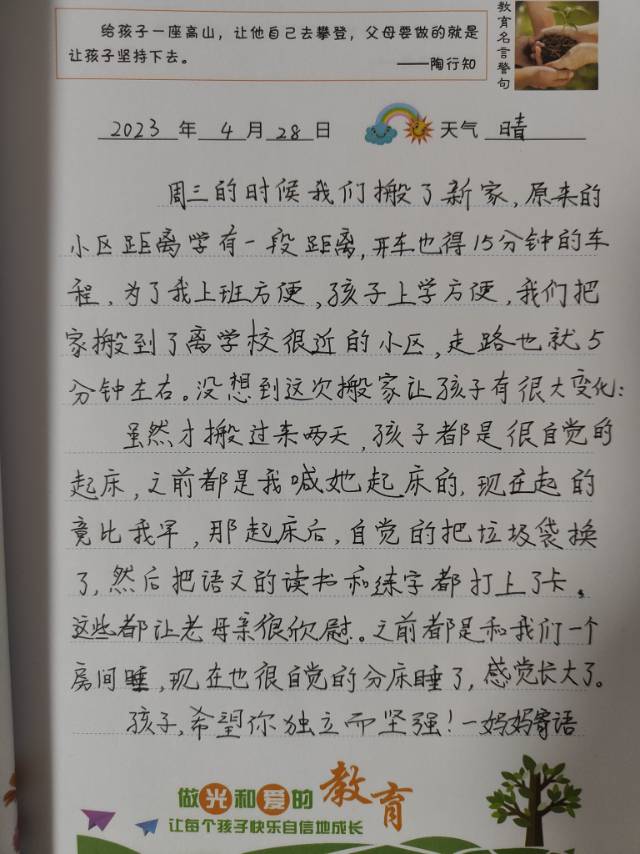 给孩子一座高山，让他自己去攀登，父母要做的就是
让孩子坚持下去。
——陶行知
教育名言警句
2023年4月28日 天气 晴
周三的时候我们搬了新家，原来的
小区距离学有一段距离，开车也得15分钟的车
程，为了我上班方便，孩子上学方便，我们把
家搬到了离学校很近的小区，走路也就5
分钟左右。没想到这次搬家让孩子有很大变化：
虽然才搬过来两天，孩子都是很自觉的
起床，之前都是我喊她起床的，现在起的
竟比我早，那起床后，自觉的把垃圾袋换
了，然后把语文的读书和练字都打上了卡。
这些都让老母亲很欣慰。之前都是和我们一个
房间睡，现在也很自觉的分床睡了，感觉长大了。
孩子，希望你独立而坚强！—妈妈寄语
做光和爱的教育
让每个孩子快乐自信地成长